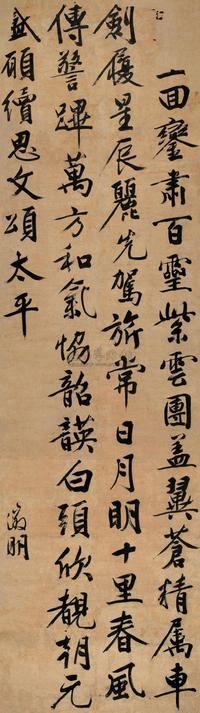 一回鑾肅百靈紫雲團蓋翼蒼精屬車
劍履星辰麗先駕旂常日月明十里春風
傳警蹕萬方和氣恊韶韺白頭欣覩朝元
盛願續思文頌太平
徵明